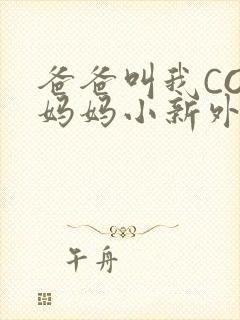 爸爸叫我CO
妈妈小新外
午舟